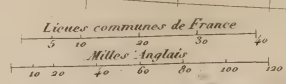 Lieues communes de France
5 10 20 30 40
Milles Anglais
10 20 40 60 80 100 120